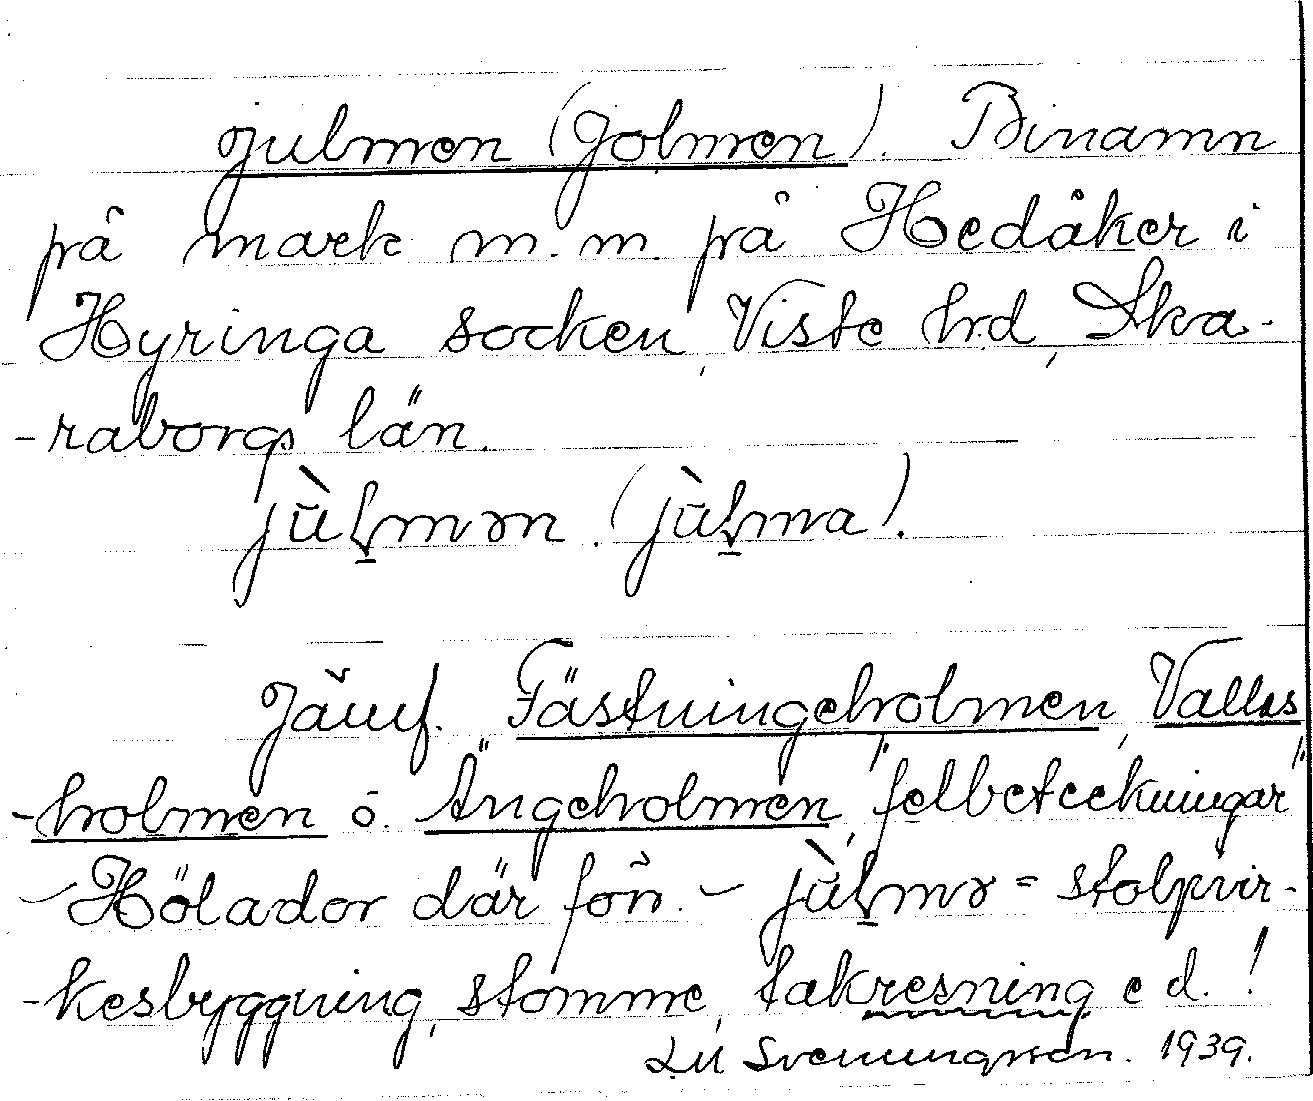 Julmen (Jolmen). Binamn
på mark m.m. på Hedåker i
Hyringa socken, Viste hrd, Ska-
-raborgs län.
jùⱡmən. (jùⱡma).
Jämf. Fästningeholmen, Valles
-holmen o. Ängeholmen, "felbeteckningar"
- Hölador där förr. - jùⱡmə = stolpvir-
-kesbyggning, stomme, takresning e d.!
Svenungsson. 1939.